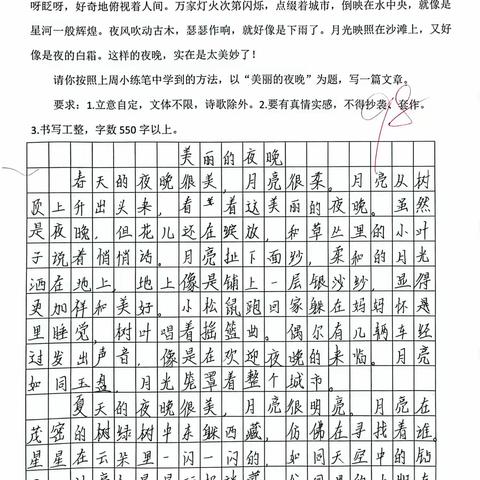 呀眨呀，好奇地俯视着人间。万家灯火次第闪烁，点缀着城市，倒映在水中央，就像是
星河一般辉煌。夜风吹动古木，瑟瑟作响，就好像是下雨了。月光映照在沙滩上，又好
像是夜的白霜。这样的夜晚，实在是太美妙了！
请你按照上周小练笔中学到的方法，以“美丽的夜晚”为题，写一篇文章。
要求：1.立意自定，文体不限，诗歌除外。2.要有真情实感，不得抄袭、套作。
98
3.书写工整，字数550字以上。
美丽的夜晚
春天的夜晚很美，月亮很柔。月亮从树
顶上升出头来，看着这美丽的夜晚。虽然
是夜晚，但花儿还在绽放，和草丛里的小叶
子说着悄悄话。月亮扯下面纱，柔和的月光
洒在地上，地上像是铺上一层银沙纱，显得
更加伴和美好。小松鼠跑回家躲在妈妈怀是
里睡觉，树叶唱着摇篮曲。偶尔有几辆车经
过发出声音，像是在欢迎夜晚的来临。月亮
如同玉盘，月光笼罩着整个城市。
夏天的夜晚很美，月亮很明亮。月亮在
茂密的树绿树中东躲西藏，仿佛在寻找着谁。
星星在云朵里一闪一闪的，如同天空中的钻